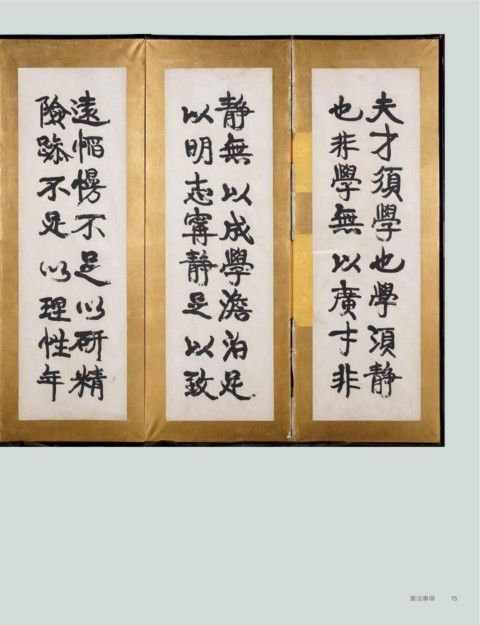 夫才須學也學須靜
也非學無以廣才非
靜無以成學澹泊足
以明志寧靜足以致
遠慆慢不足以研精
險躁不足以理性年
書法專場 15